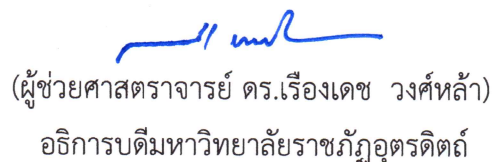 (ผู้ช่วยศาสตราจารย์ ดร.เรืองเดช วงศ์หล้า)
อธิการบดีมหาวิทยาลัยราชภัฏอุตรดิตถ์